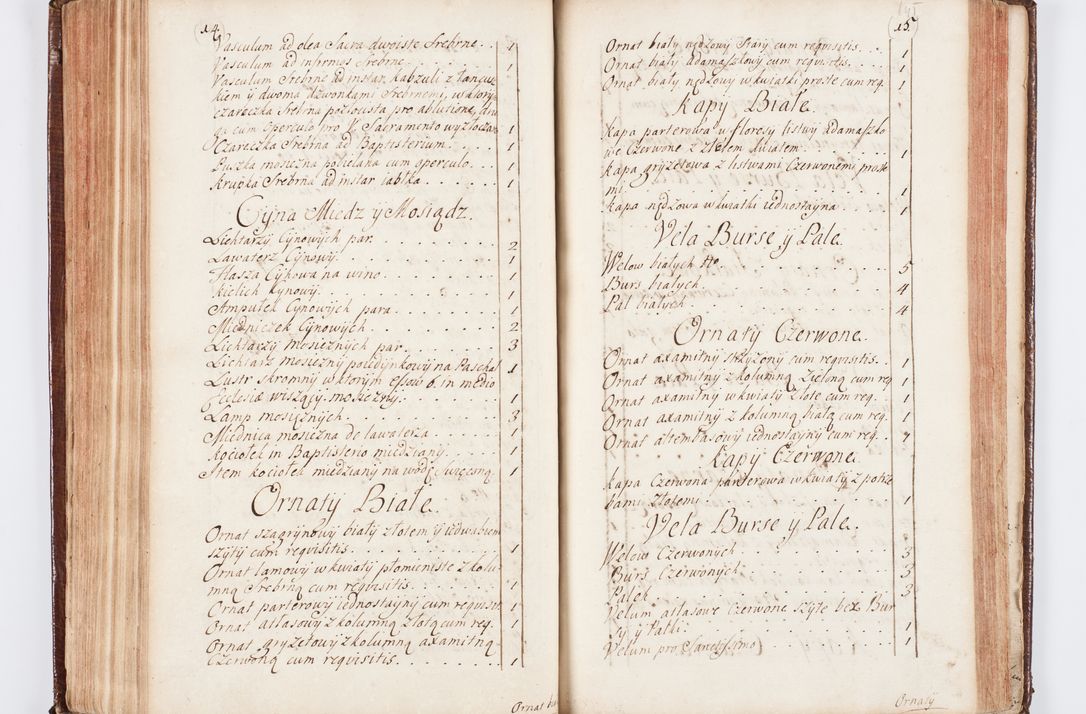 14
Vasculum ad olea Sacra dwoiste Srebrne . . 1
Vasculum ad infirmos Srebrne . . . 1
Vasculum Srebrne ad instar kabzuli z łancu
kiem ÿ dwoma dzwonkami Srebrnemi, w ktory
czareczka Srebrna pozłocista pro ablutione, dru
ga cum operculo pro V. Sacramento wyzłocan 1
Czareczka Srebrna ad Baptisterium . . . 1
Puszka mosiezna pobielana cum operculo . 1
Krupka Srebrna ad instar iabłka . . . . . 1
Cÿna Miedz ÿ Mosiądz.
Lichtarzÿ Cÿnowÿch par . . . . . . . 2
Lawaterz Cÿnowÿ . . . . . . . 1
Flasza Cÿnowa na wino . . . . . . 1
Kielich Cynowÿ . . . . . . . 1
Ampułek Cÿnowÿch para . . . . . . 1
Miedniczek Cÿnowÿch . . . . . . . 2
Lichtarzÿ mosieznÿch par . . . . . . 3
Lichtarz mosieznÿ poiedÿnkowÿ na Paschał 1
Lustr skromnÿ w ktorÿm Esow 6. in medio
Ecclesiæ wiszącÿ mosieznÿ . . . . . 1
Lamp mosięznÿch . . . . . . . . 3
Miednica mosiezna do lawaterza . . . . 1
Kociołek in Baptisterio miedzianÿ . . . . 1
Item kociołek miedzianÿ na wodę swięconą 1
Ornatÿ Białe.
Ornat szagrÿnowÿ białÿ złotem ÿ iedwabiem
szÿtÿ cum requisitis . . . . . . . 1
Ornat lamowÿ w kwiatÿ płomieniste z kolu
mną Srebrną cum requisitis . . . . . 1
Ornat parterowÿ iednostaÿnÿ cum requisit. 1
Ornat atłasowÿ z kolumną złotą cum req. 1
Ornat grÿzetowÿ z kolumną axamitną
Czerwoną cum requisitis . . . . . . 1
Ornat bia
15
Ornat białÿ nędzowÿ starÿ cum requisitis . . 1
Ornat białÿ Adamaszkowÿ cum requisitis . . 1
Ornat białÿ nędzowy w kwiatki proste cum req. 1
Kapy Białe.
Kapa parterowa w floresy listwÿ Adamaszko
we Czerwone z złotem kwiatem . . . . . 1
Kapa grÿzetowa z listwami Czerwonemi proste
mi . . . . . . . . 1
Kapa nędzowa w kwiatki iednostaÿna . . . . 1
Vela Burse ÿ Pale.
Welow białÿch No . . . . . . . . 5
Burs białÿch . . . . . . . . 4
Pal białÿch . . . . . . . . 4
Ornatÿ Czerwone.
Ornat axamitnÿ strzÿzonÿ cum requisitis . . 1
Ornat axamitnÿ z kolumną Zieloną cum req 1
Ornat axamitnÿ w kwiatÿ złote cum req . . 1
Ornat axamitnÿ z kolumną białą cum req. 1
Ornat altembasowÿ iednostaÿnÿ cum req . . 1
Kapÿ Czerwone.
Kapa Czerwona parterowa w kwiatÿ z potrze
bami złotemi . . . . . . . . 1
Vela Burse y Pale.
Welow Czerwonÿch . . . . . . . 3
Burs Czerwonÿch . . . . . . . 3
Palek . . . . . . . . 3
Velum atłasowe Czerwone szÿte bez Bur
sÿ ÿ Palki . . . . . . . . 1
Velum pro Sanctissimo . . . . . . 1
Ornatÿ